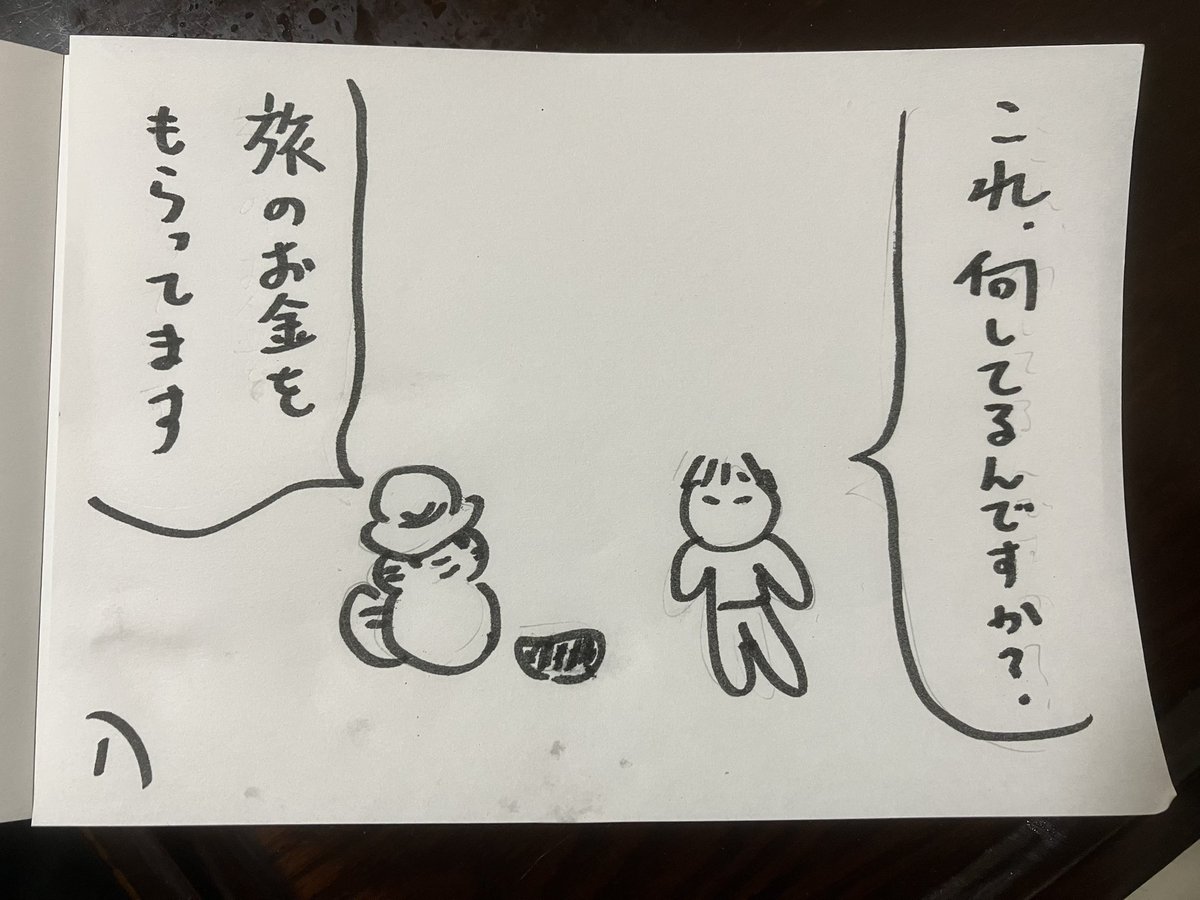 これ、何してるんですか?
旅のお金を
もらってます